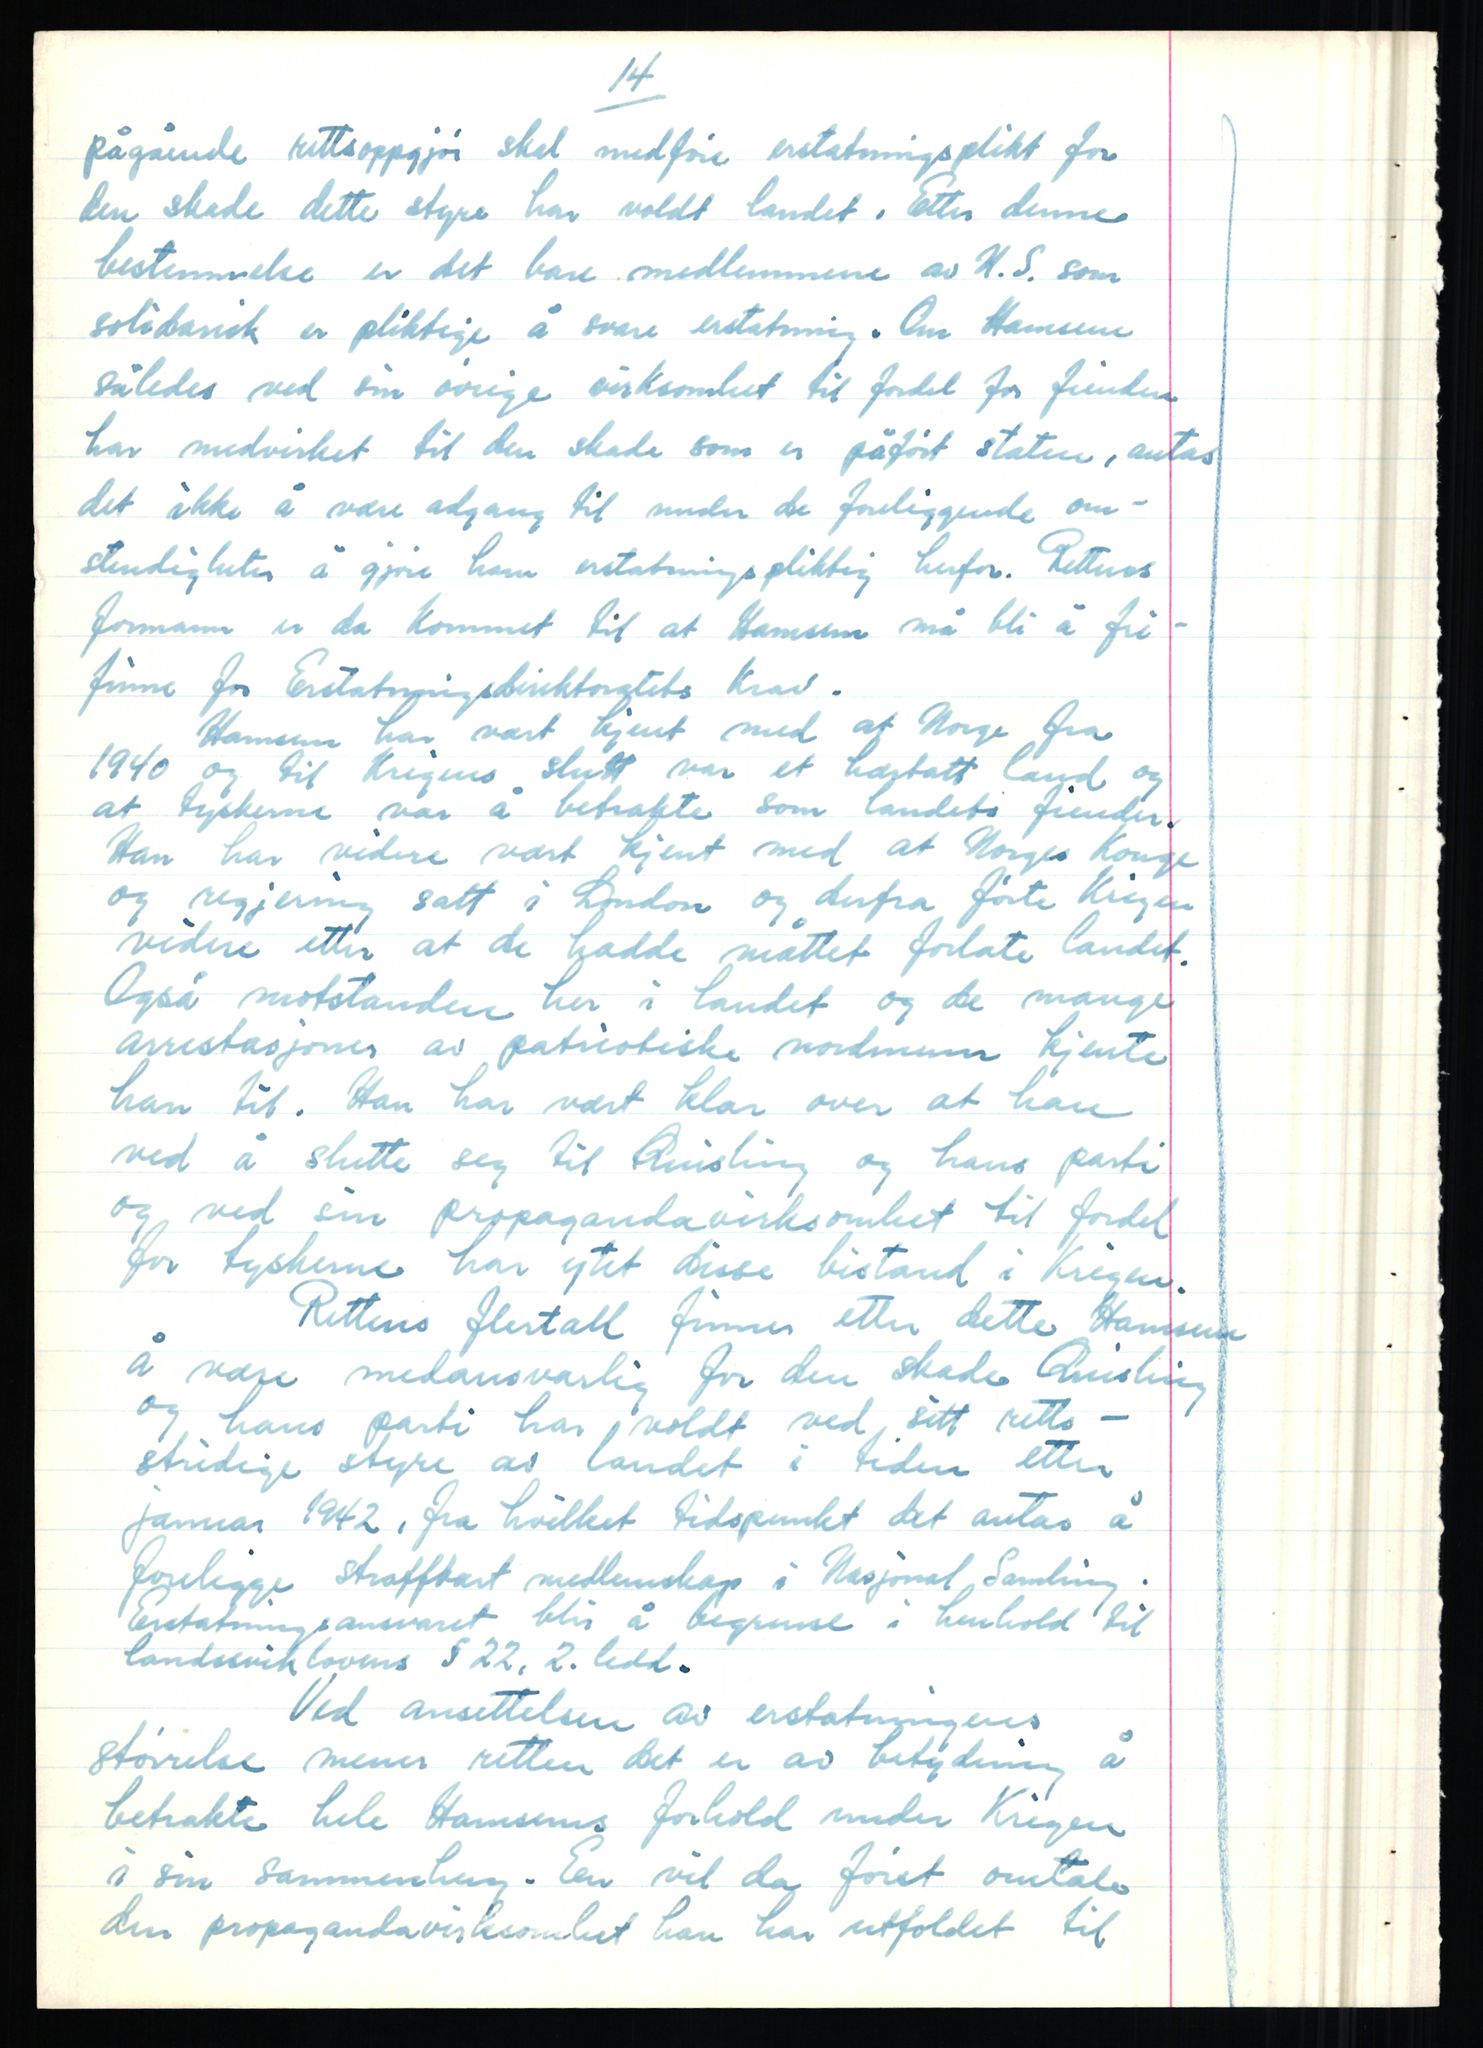 14
pågående rettsoppgjør skal medføre erstatningsplikt for
den skade dette styre har voldt landet. Etter denne
bestemmelse er det bare medlemmene av N.S. som
solidarisk er pliktige å svare erstatning. Om Hamsun
således ved sin øvrige virksomhet til fordel for fienden
har medvirket til den skade som er påført staten, antas
det ikke å være adgang til under de foreliggende om-
stendigheter å gjøre ham erstatningspliktig herfor. Rettens
formann er da kommet til at Hamsun må bli å fri-
finne for Erstatningsdirektoratets krav.
Hamsun har vært kjent med at Norge fra
1940 og til krigens slutt var et hærtatt land og
at tyskerne var å betrakte som landets fiender.
Han har videre vært kjent med at Norges Konge
og regjering satt i London og derfra førte krigen
videre etter at de hadde måttet forlate landet.
Også motstanden her i landet og de mange
arrestasjoner av patriotiske nordmenn kjente
han til. Han har vært klar over at han
ved å slutte seg til Quisling og hans parti
og ved sin propagandavirksomhet til fordel
for tyskerne har ytet disse bistand i krigen.
Rettens flertall finner etter dette Hamsun
å være medansvarlig for den skade Quisling
og hans parti har voldt ved sitt retts-
stridige styre av landet i tiden etter
januar 1942, fra hvilket tidspunkt det antas å
foreligge straffbart medlemskap i Nasjonal Samling.
Erstatningsansvaret blir å begrense i henhold til
landssviklovens § 22, 2. ledd.
Ved ansettelsen av erstatningens
størrelse mener retten det er av betydning å
betrakte hele Hamsuns forhold under krigen
i sin sammenheng. En vil da først omtale
den propagandavirksomhet han har utfoldet til